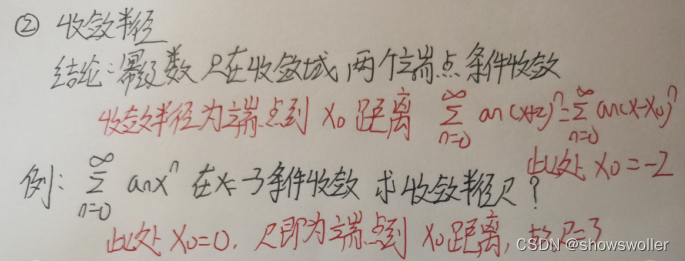 ② 收敛半径
结论:幂级数 只在收敛域 两个端点条件收敛
收敛半径为端点到 x₀ 距离 ∑_{n=0}^{∞} an(x+2)ⁿ=∑_{n=0}^{∞} an(x-x₀)ⁿ
此处 x₀=-2
例: ∑_{n=0}^{∞} anxⁿ 在x=-3条件收敛 求收敛半径R?
此处 x₀=0. R即为端点到 x₀距离, 故R=3
CSDN @showswoller